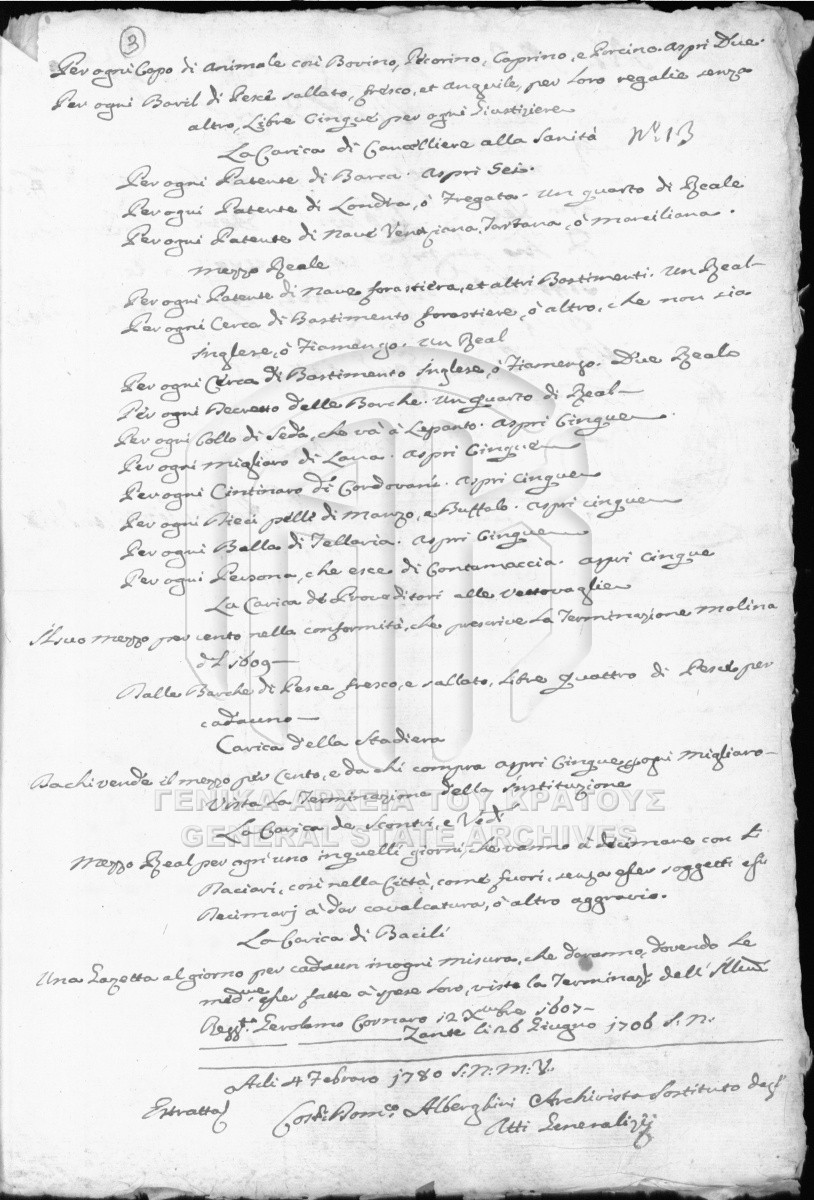 3
Per ogni Capo di Animale così Bovino, Pecorino, Caprino, e Porcino. Aspri Due.
Per ogni Baril di Pesce sallato, fresco, et Anguile, per loro regalie senza
altro, Libre Cinque per ogni Giustiziere
La Carica di Cancelliere alla Sanità
N.º 13
Per ogni Patente di Barca. Aspri Sei.
Per ogni Patente di Londra, ò Fregata. Un quarto di Reale
Per ogni Patente di Nave Veneziana, Tartana, ò Marciliana.
mezzo Reale
Per ogni Patente di Nave forastiera, et altri Bastimenti. Un Real
Per ogni Cerca di Bastimento forastiere, ò altro, che non sia
Inglese, ò Fiamengo. Un Real
Per ogni Cerca di Bastimento Inglese, ò Fiamengo. Due Reale
Per ogni Decretto delle Barche. Un quarto di Real
Per ogni Collo di Seda, che và à Lepanto. Aspri Cinque
Per ogni Migliaro di Lana. Aspri Cinque
Per ogni Cintinaro di Cordovani. Aspri Cinque
Per ogni Dieci pelli di Manzo, e Buffalo. Aspri cinque
Per ogni Balla di Tellaria. Aspri Cinque
Per ogni Persona, che esce di Contumaccia. Aspri Cinque
La Carica de Proveditori alle Vettovaglie
Il suo mezzo per cento nella conformità, che prescrive la Terminazione Molina
d'l 1609
Dalle Barche di Pesce fresco, e sallato, Libre quattro di Pesce per
cadauno
Carica della Stadiera
Da chi vende il mezzo per cento, e da chi compra Aspri Cinque ogni Migliaro
Vista la Terminazione della Instituzione
ΓΕΝΙΚΑ ΑΡΧΕΙΑ ΤΟΥ ΚΡΑΤΟΥΣ
GENERAL STATE ARCHIVES
La Carica de Scontri, e Vedi
Mezzo Real per ogni uno in quelli giorni, che vanno à decimare con li
Daciari, così nella Città, come fuori, senza esser soggetti essi
Decimarj à dar cavalcatura, ò altro aggravio.
La Carica di Bacili
Una Gazetta al giorno per cadaun in ogni misura, che daranno, dovendo le
med.me esser fatte à spese loro, viste la Terminaz.e dell' Illmo
Regg.to Gerolamo Cornaro 12 Xmbre 1607
Zante li 26 Giugno 1706 S: N:
Adi 4 Febraro 1780 S: N: M: V.
Estratta
Domco Alberghini Archivista Sostituto degl'
Atti Generali